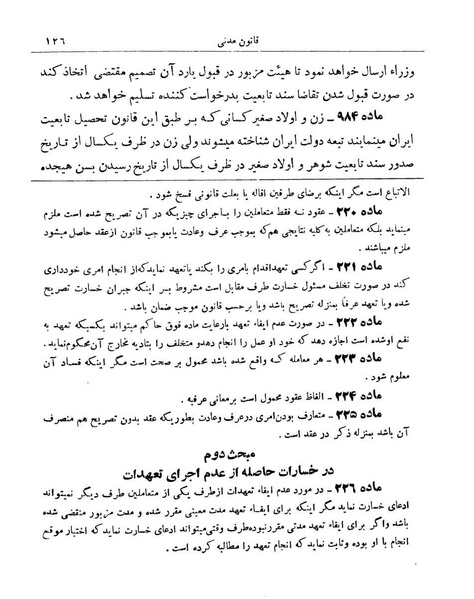 قانون مدنی
۱۲۶
وزراء ارسال خواهد نمود تا هیئت مزبور در قبول یارد آن تصمیم مقتضی اتخاذ کند
در صورت قبول شدن تقاضا سند تابعیت بدرخواست کننده تسلیم خواهد شد.
ماده ۹۸۴ ـ زن و اولاد صغیر کسانی که بر طبق این قانون تحصیل تابعیت
ایران مینمایند تبعه دولت ایران شناخته میشوند ولی زن در ظرف یکسال از تاریخ
صدور سند تابعیت شوهر و اولاد صغیر در ظرف یکسال از تاریخ رسیدن بسن هیجده
الاتباع است مگر اینکه برضای طرفین اقاله یا بعلت قانونی فسخ شود.
ماده ۲۲۰ ـ عقود نه فقط متعاملین را باجرای چیزیکه در آن تصریح شده است ملزم
مینماید بلکه متعاملین به کلیه نتایجی هم که بموجب عرف وعادت یابموجب قانون ازعقد حاصل میشود
ملزم میباشند.
ماده ۲۲۱ ـ اگر کسی تعهد اقدام بامری را بکند یاتعهد نماید که از انجام امری خودداری
کند در صورت تخلف مسئول خسارت طرف مقابل است مشروط بر اینکه جبران خسارت تصریح
شده ویا تعهد عرفاً بمنزله تصریح باشد ویا برحسب قانون موجب ضمان باشد.
ماده ۲۲۲ ـ در صورت عدم ایفاء تعهد بارعایت ماده فوق حاکم میتواند بکسیکه تعهد به
نفع اوشده است اجازه دهد که خود او عمل را انجام دهدو متخلف را بتادیه مخارج آن محکوم نماید.
ماده ۲۲۳ ـ هر معامله که واقع شده باشد محمول بر صحت است مگر اینکه فساد آن
معلوم شود.
ماده ۲۲۴ ـ الفاظ عقود محمول است برمعانی عرفیه.
ماده ۲۲۵ ـ متعارف بودن امری درعرف وعادت بطوریکه عقد بدون تصریح هم منصرف
آن باشد بمنزله ذکر در عقد است.
مبحث دوم
در خسارات حاصله از عدم اجرای تعهدات
ماده ۲۲۶ ـ در مورد عدم ایفاء تعهدات ازطرف یکی از متعاملین طرف دیگر نمیتواند
ادعای خسارت نماید مگر اینکه برای ایفاء تعهد مدت معینی مقرر شده و مدت مزبور منقضی شده
باشد واگر برای ایفاء تعهد مدتی مقررنبوده طرف وقتی میتواند ادعای خسارت نماید که اختیار موقع
انجام با او بوده وثابت نماید که انجام تعهد را مطالبه کرده است.